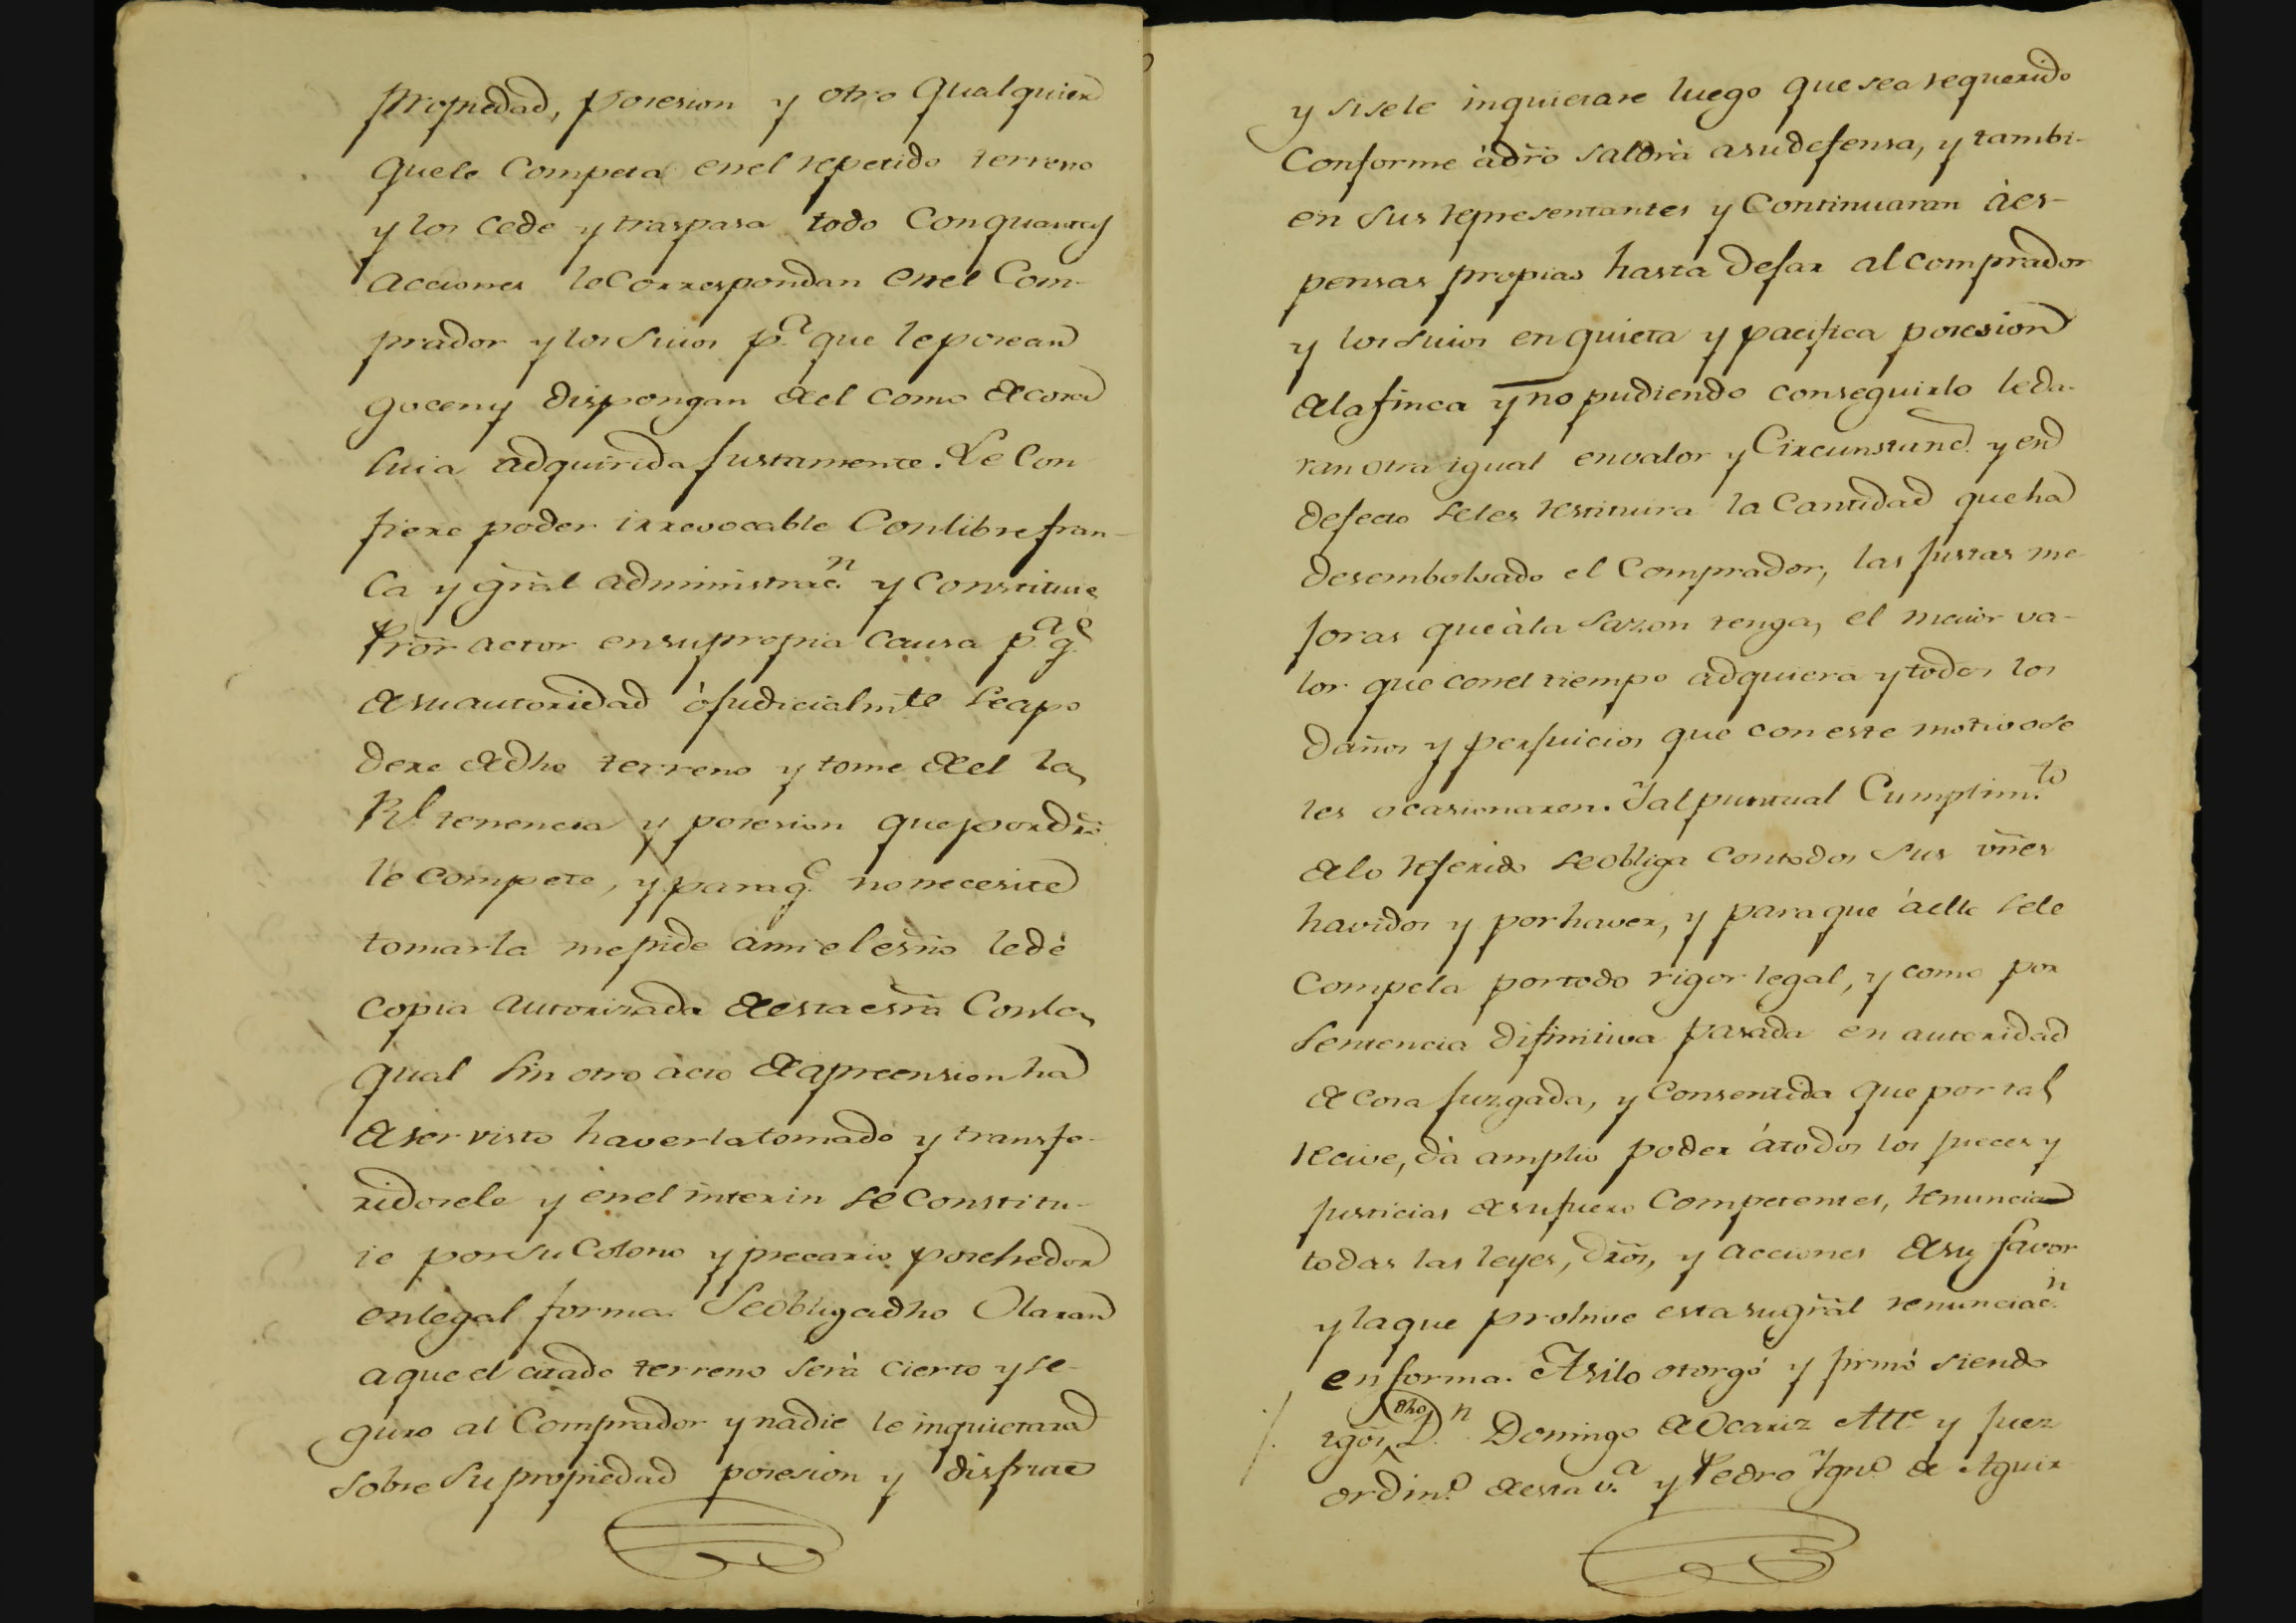 propriedad, posesion y otro qualquiera
quele Competa enel repetido terreno
y los cede y traspasa todo Conquantas
acciones leCorrespondan enel Com-
prador y los suios p.ª que le posean
gocen y dispongan de el como de cosa
suia adquirida justamente. Le Con
fiere poder irrevocable Conlibre fran-
ca y gral administrac.n y constituie
Pror actor ensupropia causa p.ª q.e
de suautoridad ò judicialmte seapo
dere de dho terreno y tome de el la
Rl. tenencia y posesion que por dro
le compete, y para q.e no necesite
tomarla me pide àmi el esno ledè
copia autorizada de esta esra Conla
qual sin otro àcto de apreension ha
de ser visto haverla tomado y transfe-
ridosele y enel interin se Constitu-
ie por su Colono y precario posehedor
enlegal forma. Seobliga dho Olaran
a que el citado terreno serà cierto y se-
guro al Comprador y nadie le inquietara
sobre su propiedad posesion y disfrute
y si sele inquietare luego que sea requerido
Conforme à dro saldrà a sudefensa, y tambi-
en sus representantes y Continuaran à es-
pensas propias hasta dejar al comprador
y los suios en quieta y pacifica posesion
de la finca y no pudiendo conseguirlo leda-
ran otra igual envalor y Circunstanc.s y en
defecto seles restituira la Cantidad que ha
desembolsado el Comprador, las justas me
joras que à la sazon tenga, el maior va-
lor que conel tiempo adquiera y todos los
daños y perjuicios que con este motivo se
les ocasionaren. Y al puntual Cumplim.to
de lo referido se obliga con todos sus vnes
havidos y por haver, y para que à ello sele
Compela por todo rigor legal, y como por
sentencia difinitiva pasada en autoridad
de cosa juzgada, y Consentida que por tal
recive, dà amplio poder à todos los jueces y
justicias de su fuero Competentes, renuncia
todas las leyes, dros, y acciones de su favor
y la que prohive esta su gral renunciac.n
en forma. Asilo otorgó y firmó siendo
tgos dho D.n Domingo de Ocariz Alt.e y juez
ordin.o de esta v.ª y Pedro Ygn.o de Aguir